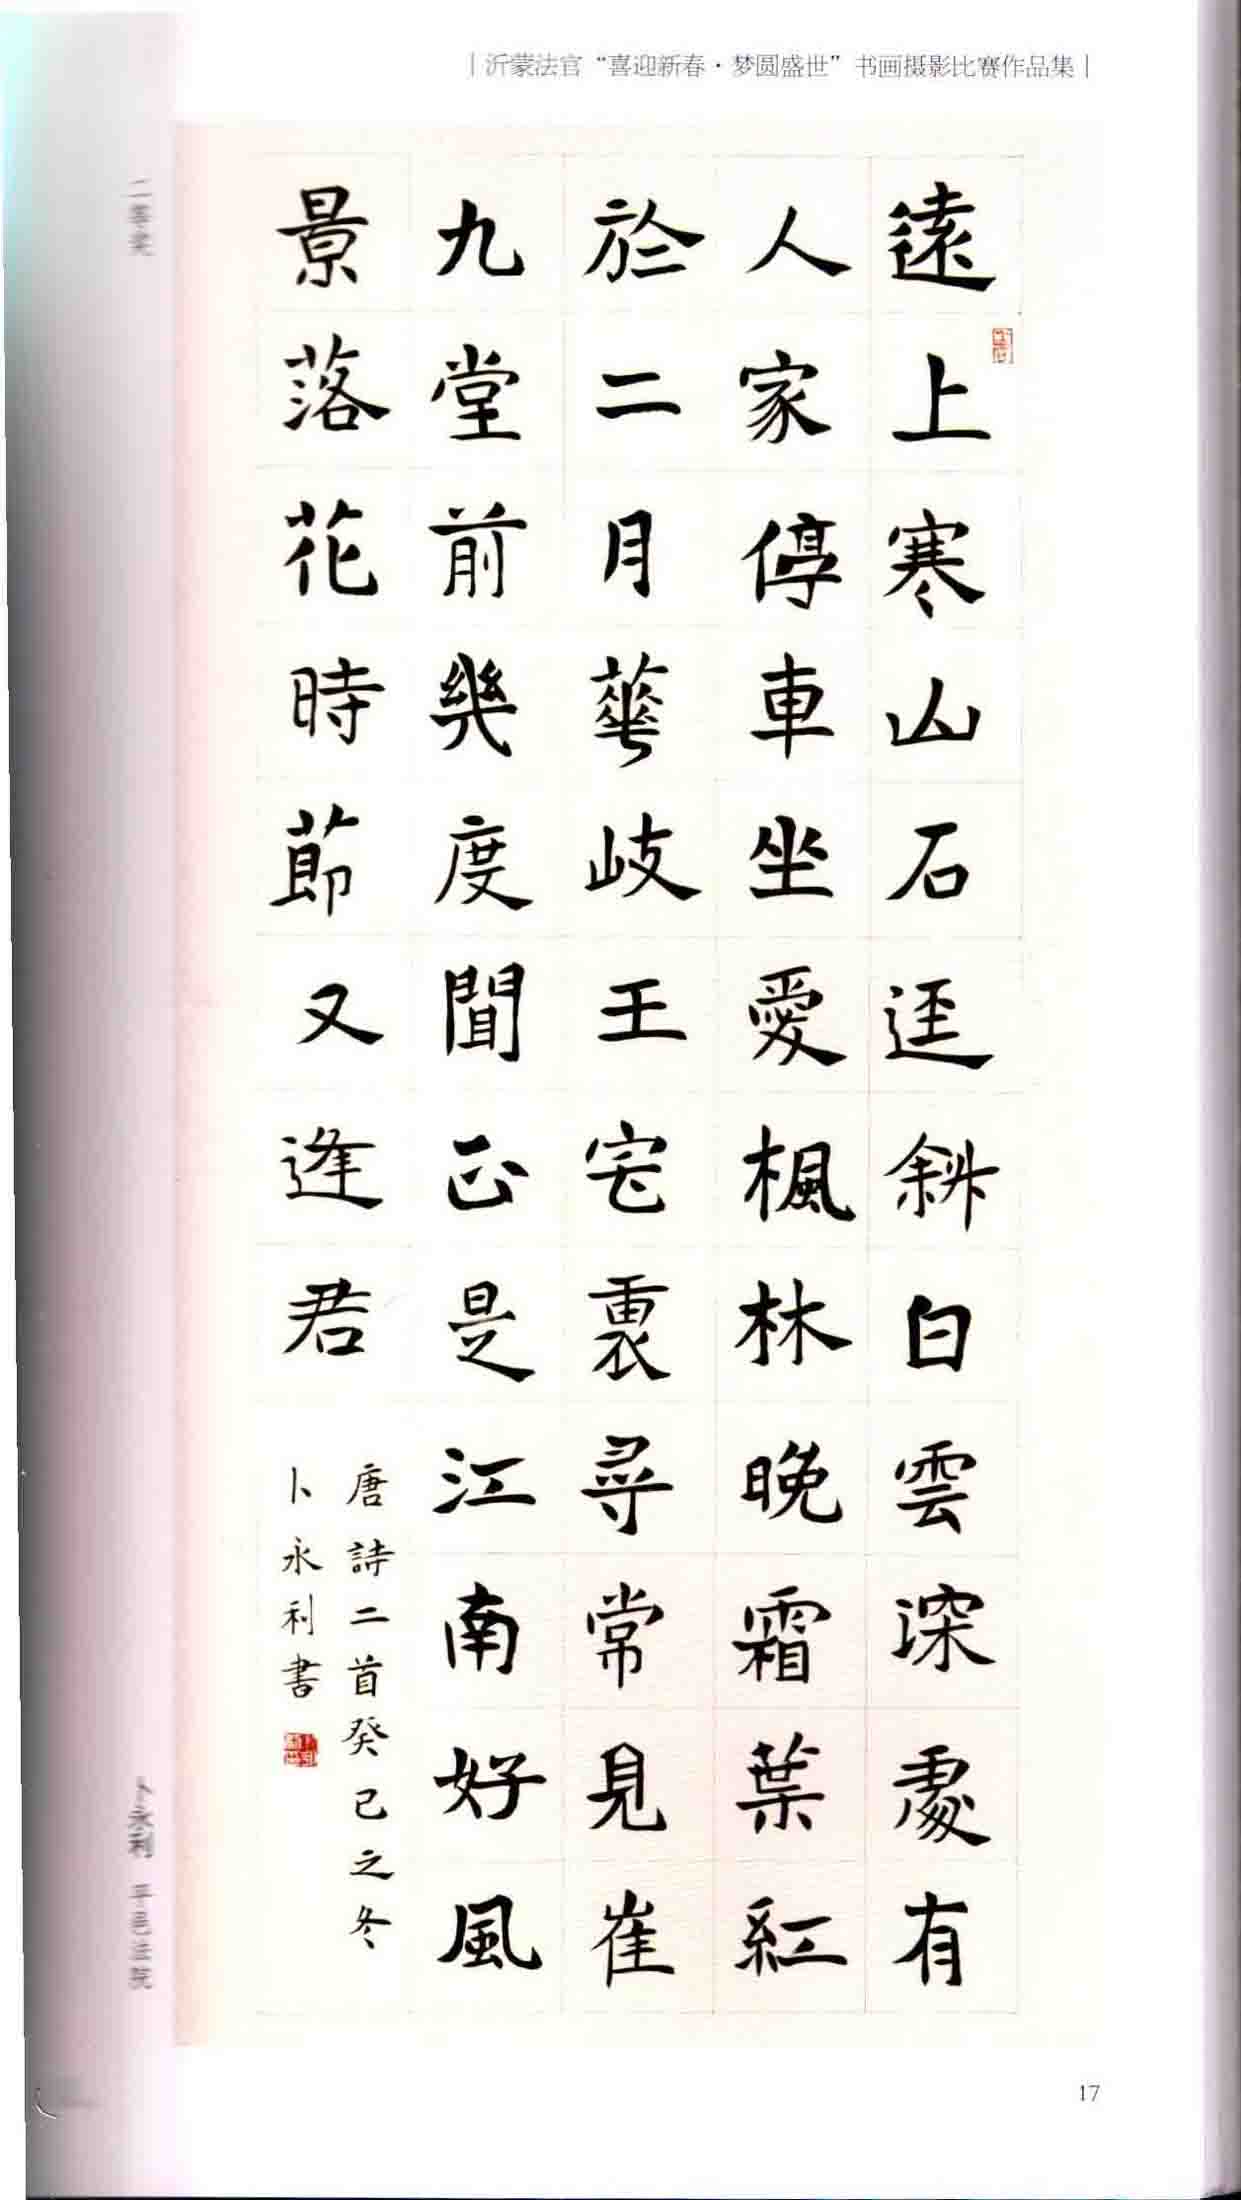 | 沂蒙法官“喜迎新春·梦圆盛世”书画摄影比赛作品集 |
遠上寒山石迳斜白雲深處有
人家停車坐愛楓林晚霜葉紅
於二月華岐王宅裏尋常見崔
九堂前幾度聞正是江南好風
景落花時節又逢君
唐詩二首癸已之冬
卜永利書
二等奖
卜永利 平邑法院
17